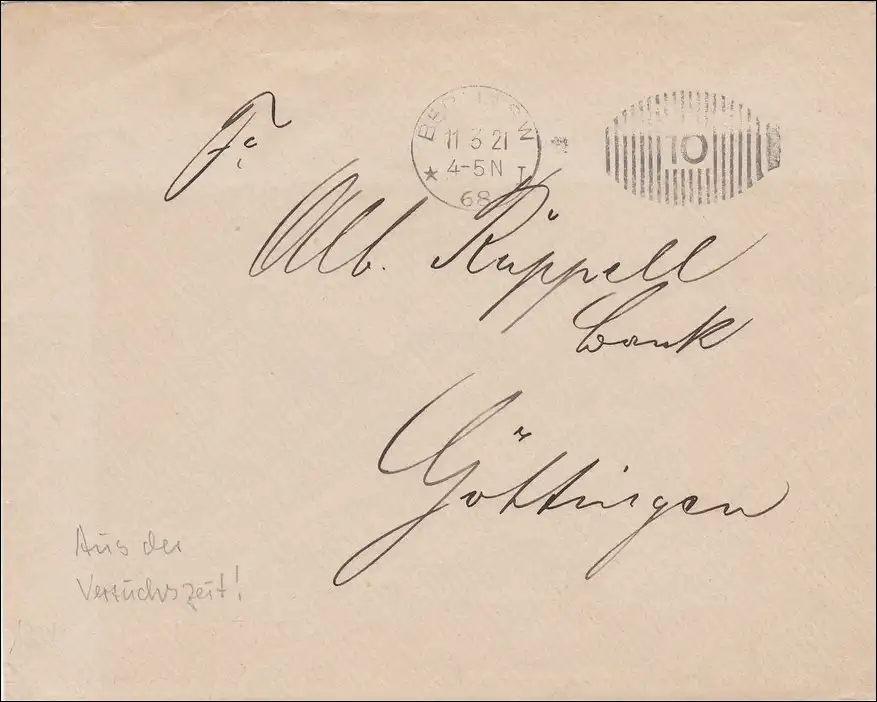 BERLIN SW
11 3 21
4-5 N
★ I
68
10
Fa
Alb. Rüppell
bank
Göttingen
Aus der
Versuchszeit!